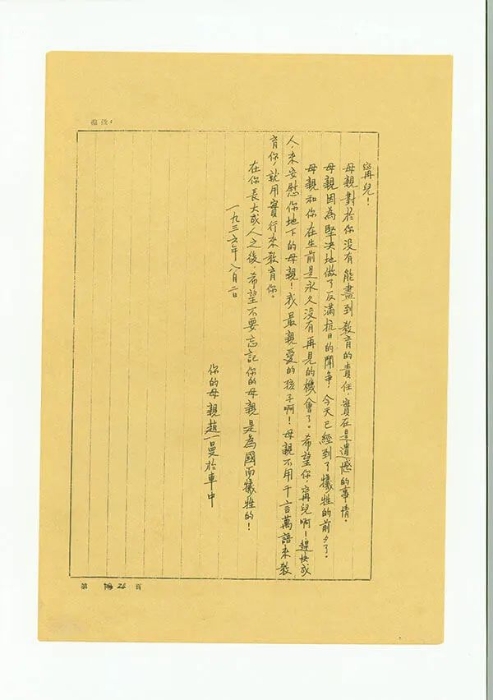 寗兒！
母親對於你没有能盡到教育的責任，實在是遺憾的事情。
母親因為堅决地做了反滿抗日的鬭争，今天已經到了犧牲的前夕了。
母親和你在生前是永久没有再見的機會了。希望你，寗兒啊！趕快成
人，來安慰你地下的母親！我最親愛的孩子啊！母親不用千言萬語來教
育你，就用實行來教育你。
在你長大成人之後，希望不要忘記你的母親是為國而犧牲的！
一九三六年八月二日
你的母親趙一曼於車中
第
頁